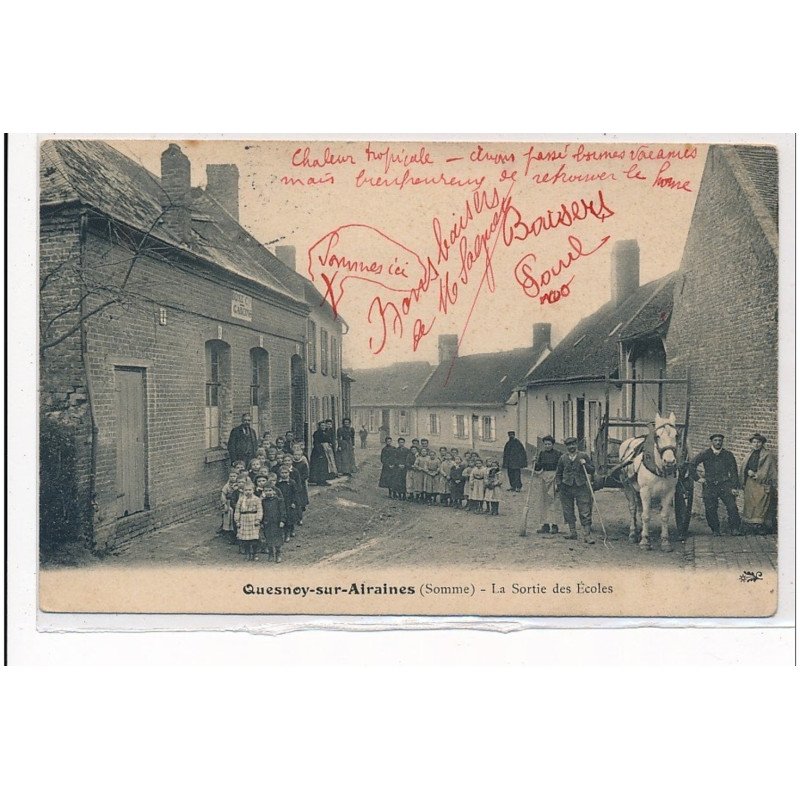 Chaleur tropicale - avons passé bonnes vacances
mais bienheureux de retrouver le home
Sommes ici
X
Bons baisers
de M
Baisers
GARÇONS
Quesnoy-sur-Airaines (Somme) - La Sortie des Écoles